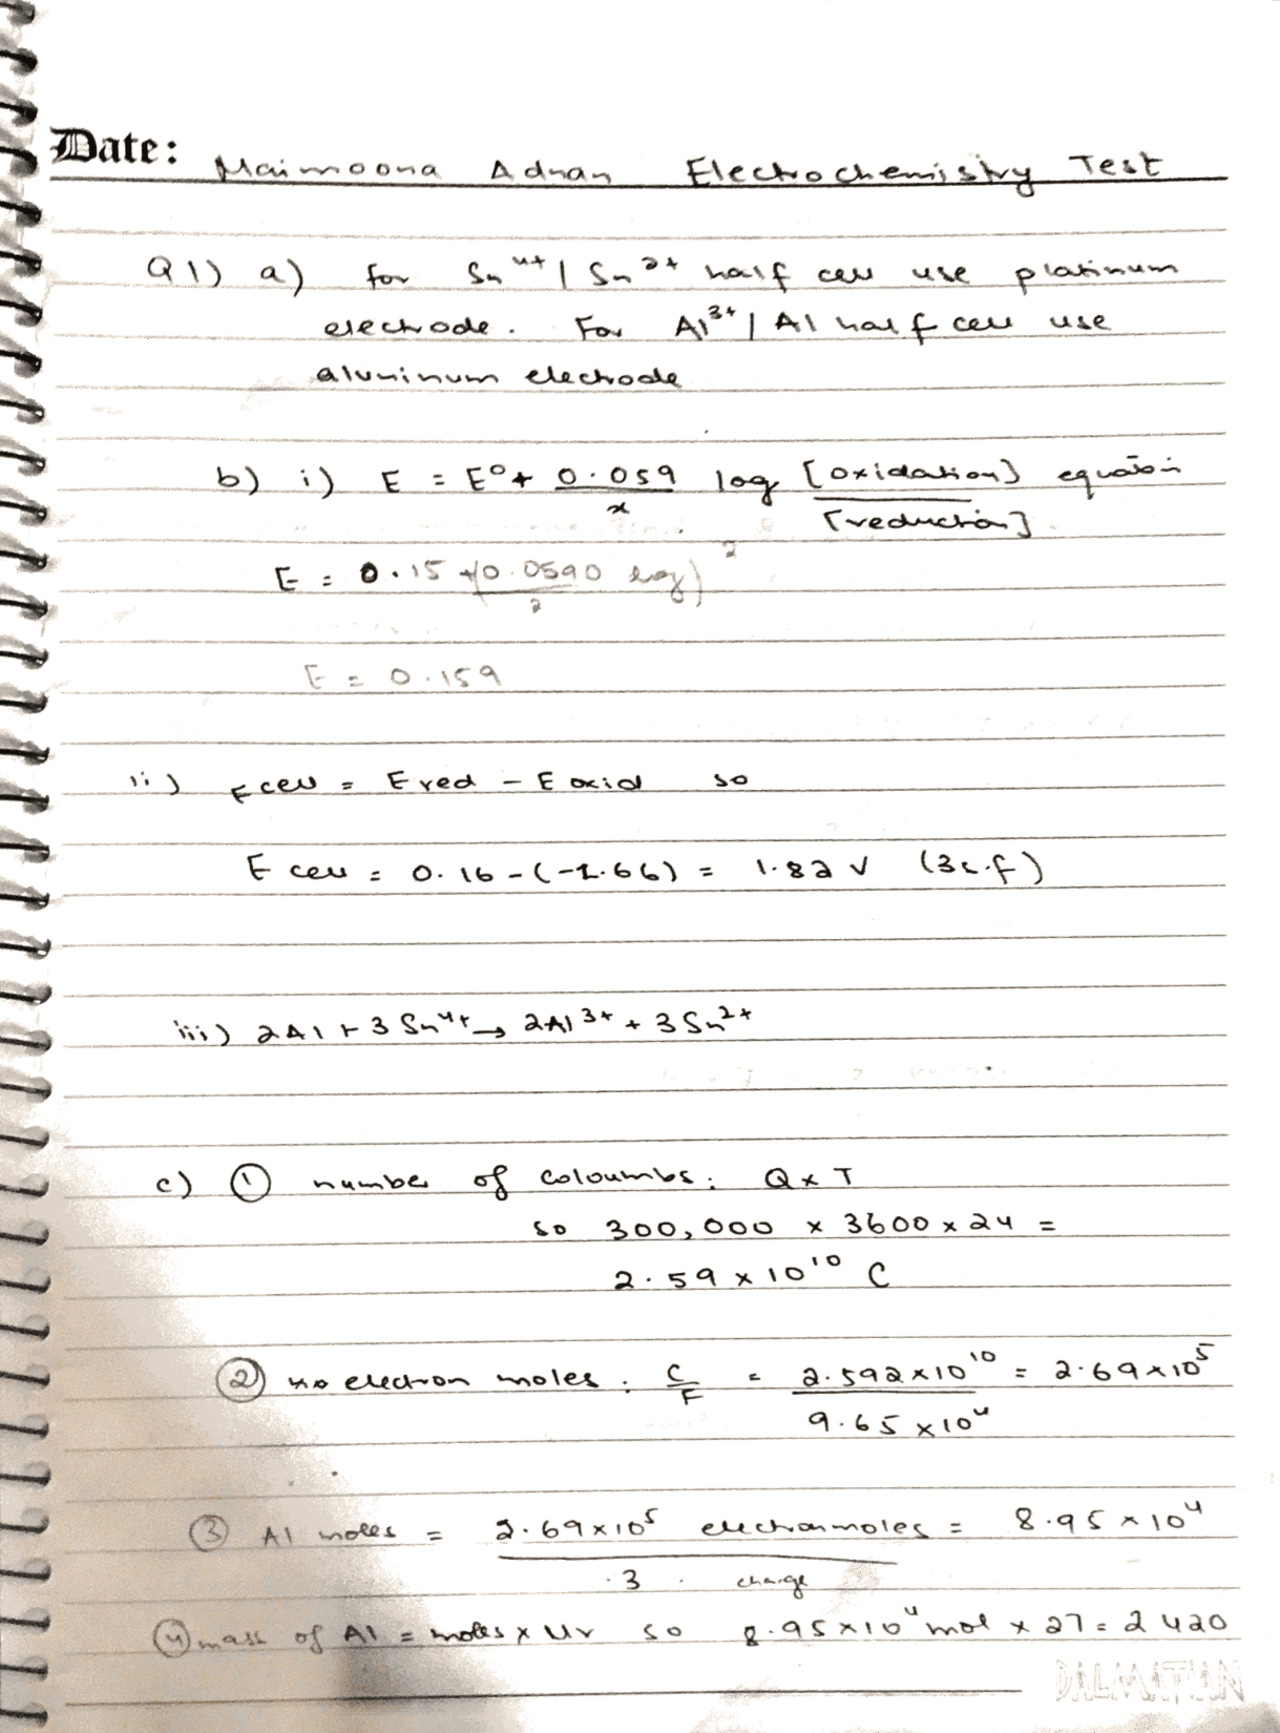 Date: Maimoona Adnan Electrochemistry Test
Q1) a) for Sn⁴⁺ | Sn²⁺ half cell use platinum
electrode. For Al³⁺ | Al half cell use
aluminum electrode
b) i) E = E⁰ + 0.059/x log [oxidation]/[reduction] equation
E = 0.15 + (0.0590/2 log) 2
E = 0.159
ii) Ecell = Ered - Eoxid so
Ecell = 0.16 - (-1.66) = 1.82 V (3s.f)
iii) 2Al + 3Sn⁴⁺ → 2Al³⁺ + 3Sn²⁺
c) ① number of coloumbs: Q x T
so 300,000 x 3600 x 24 =
2.59 x 10¹⁰ C
② no electron moles: C/F = 2.592x10¹⁰/9.65x10⁴ = 2.69x10⁵
③ Al moles = 2.69x10⁵ electronmoles/3 charge = 8.95x10⁴
④ mass of Al = moles x Mr so 8.95x10⁴ mol x 27 = 2420
DALMATIAN